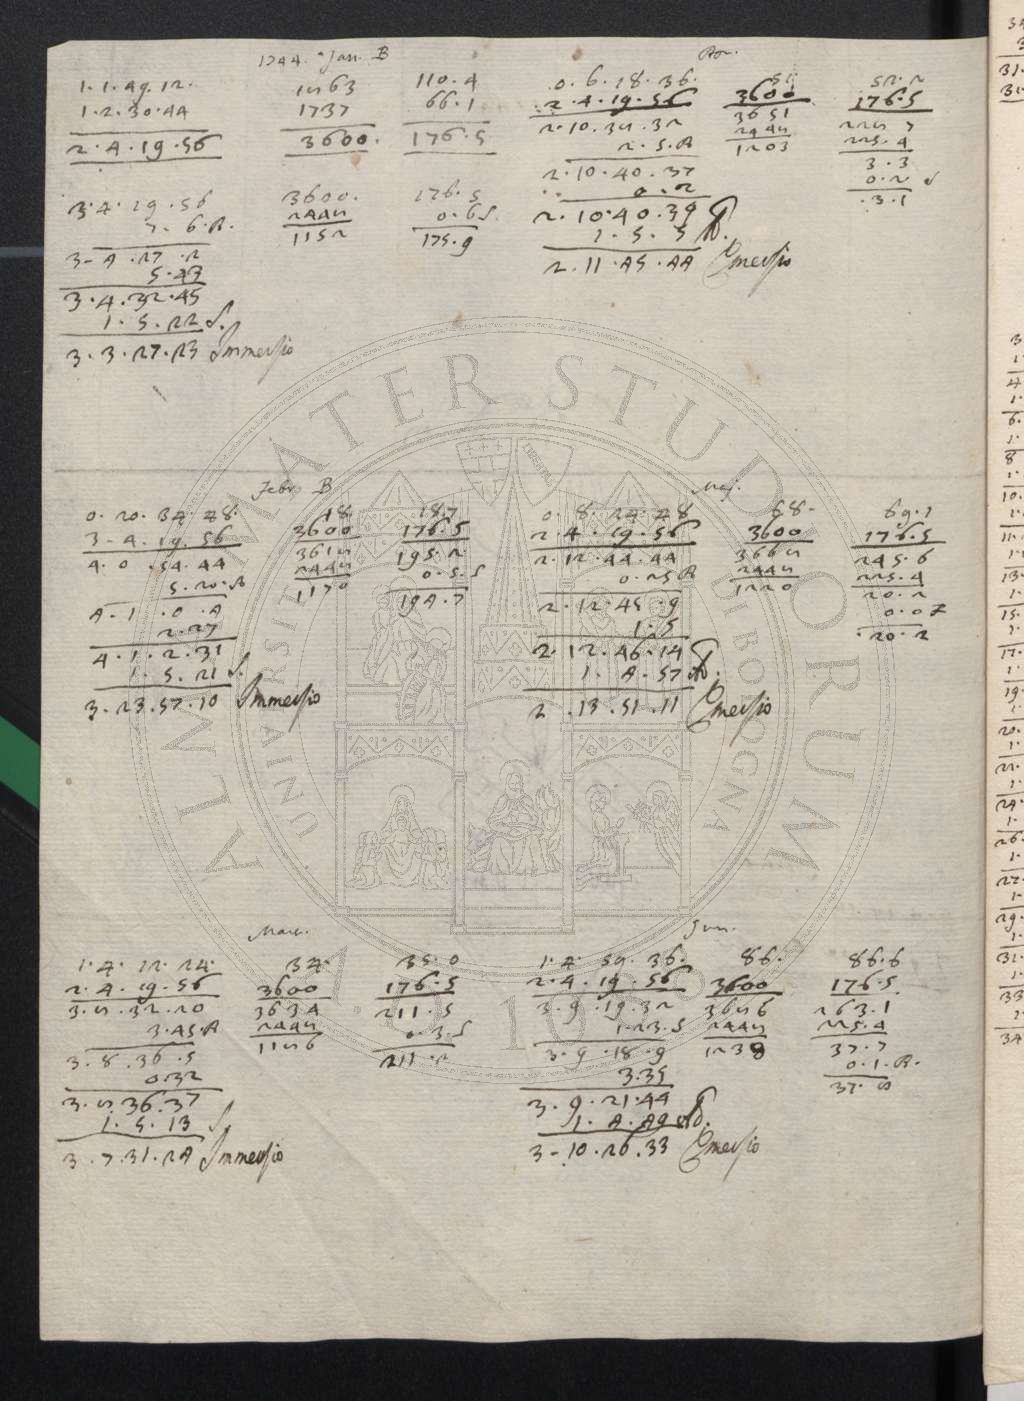 1744. Jan. B
1.1.49.12. 1863 110.4
1.2.30.44 1737 66.1
2.4.19.56 3600. 176.5
3.4.19.56 3600. 176.5
7.6.A. 2448 0.6 S.
3.4.27.2 1152 175.9
5.43
3.4.32.45
1.5.22 S.
3.3.27.23 Immersio
Apr.
0.6.18.36. 51 52.2
2.4.19.56 3600 176.5
2.10.38.32 3651 228.7
2.5.A 2448 225.4
2.10.40.37 1203 3.3
0.2 0.2 S
2.10.40.39 3.1
1.5.5 A.
2.11.45.44 Emersio
Febr. B
0.20.34.48. 18. 18.7
3.4.19.56 3600 176.5
4.0.54.44 3618 195.2
5.20.A 2448 0.5.S
4.1.0.4 1170 194.7
2.27
4.1.2.31
1.5.21 S.
3.23.57.10 Immersio
Maj.
0.8.24.48 68. 69.1
2.4.19.56 3600 176.5
2.12.44.44 3668 245.6
0.25 A 2448 225.4
2.12.45.9 1220 20.2
1.5 0.0
2.12.46.14 20.2
1.4.57 A.
2.13.51.11 Emersio
Mar.
1.4.12.24. 34. 35.0
2.4.19.56 3600 176.5
3.8.32.20 3634 211.5
3.45.A 2448 0.3.S
3.8.36.5 1186 211.2
0.32
3.8.36.37
1.5.13 S.
3.7.31.24 Immersio
Jun.
1.4.59.36. 86. 86.6
2.4.19.56 3600 176.5
3.9.19.32 3686 263.1
1.23.S 2448 225.4
3.9.18.9 1238 37.7
3.35 0.1.A.
3.9.21.44 37.8
1.4.49 A.
3.10.26.33 Emersio
ALMA MATER STUDIORUM
UNIVERSITÀ DI BOLOGNA
A.D. 1088